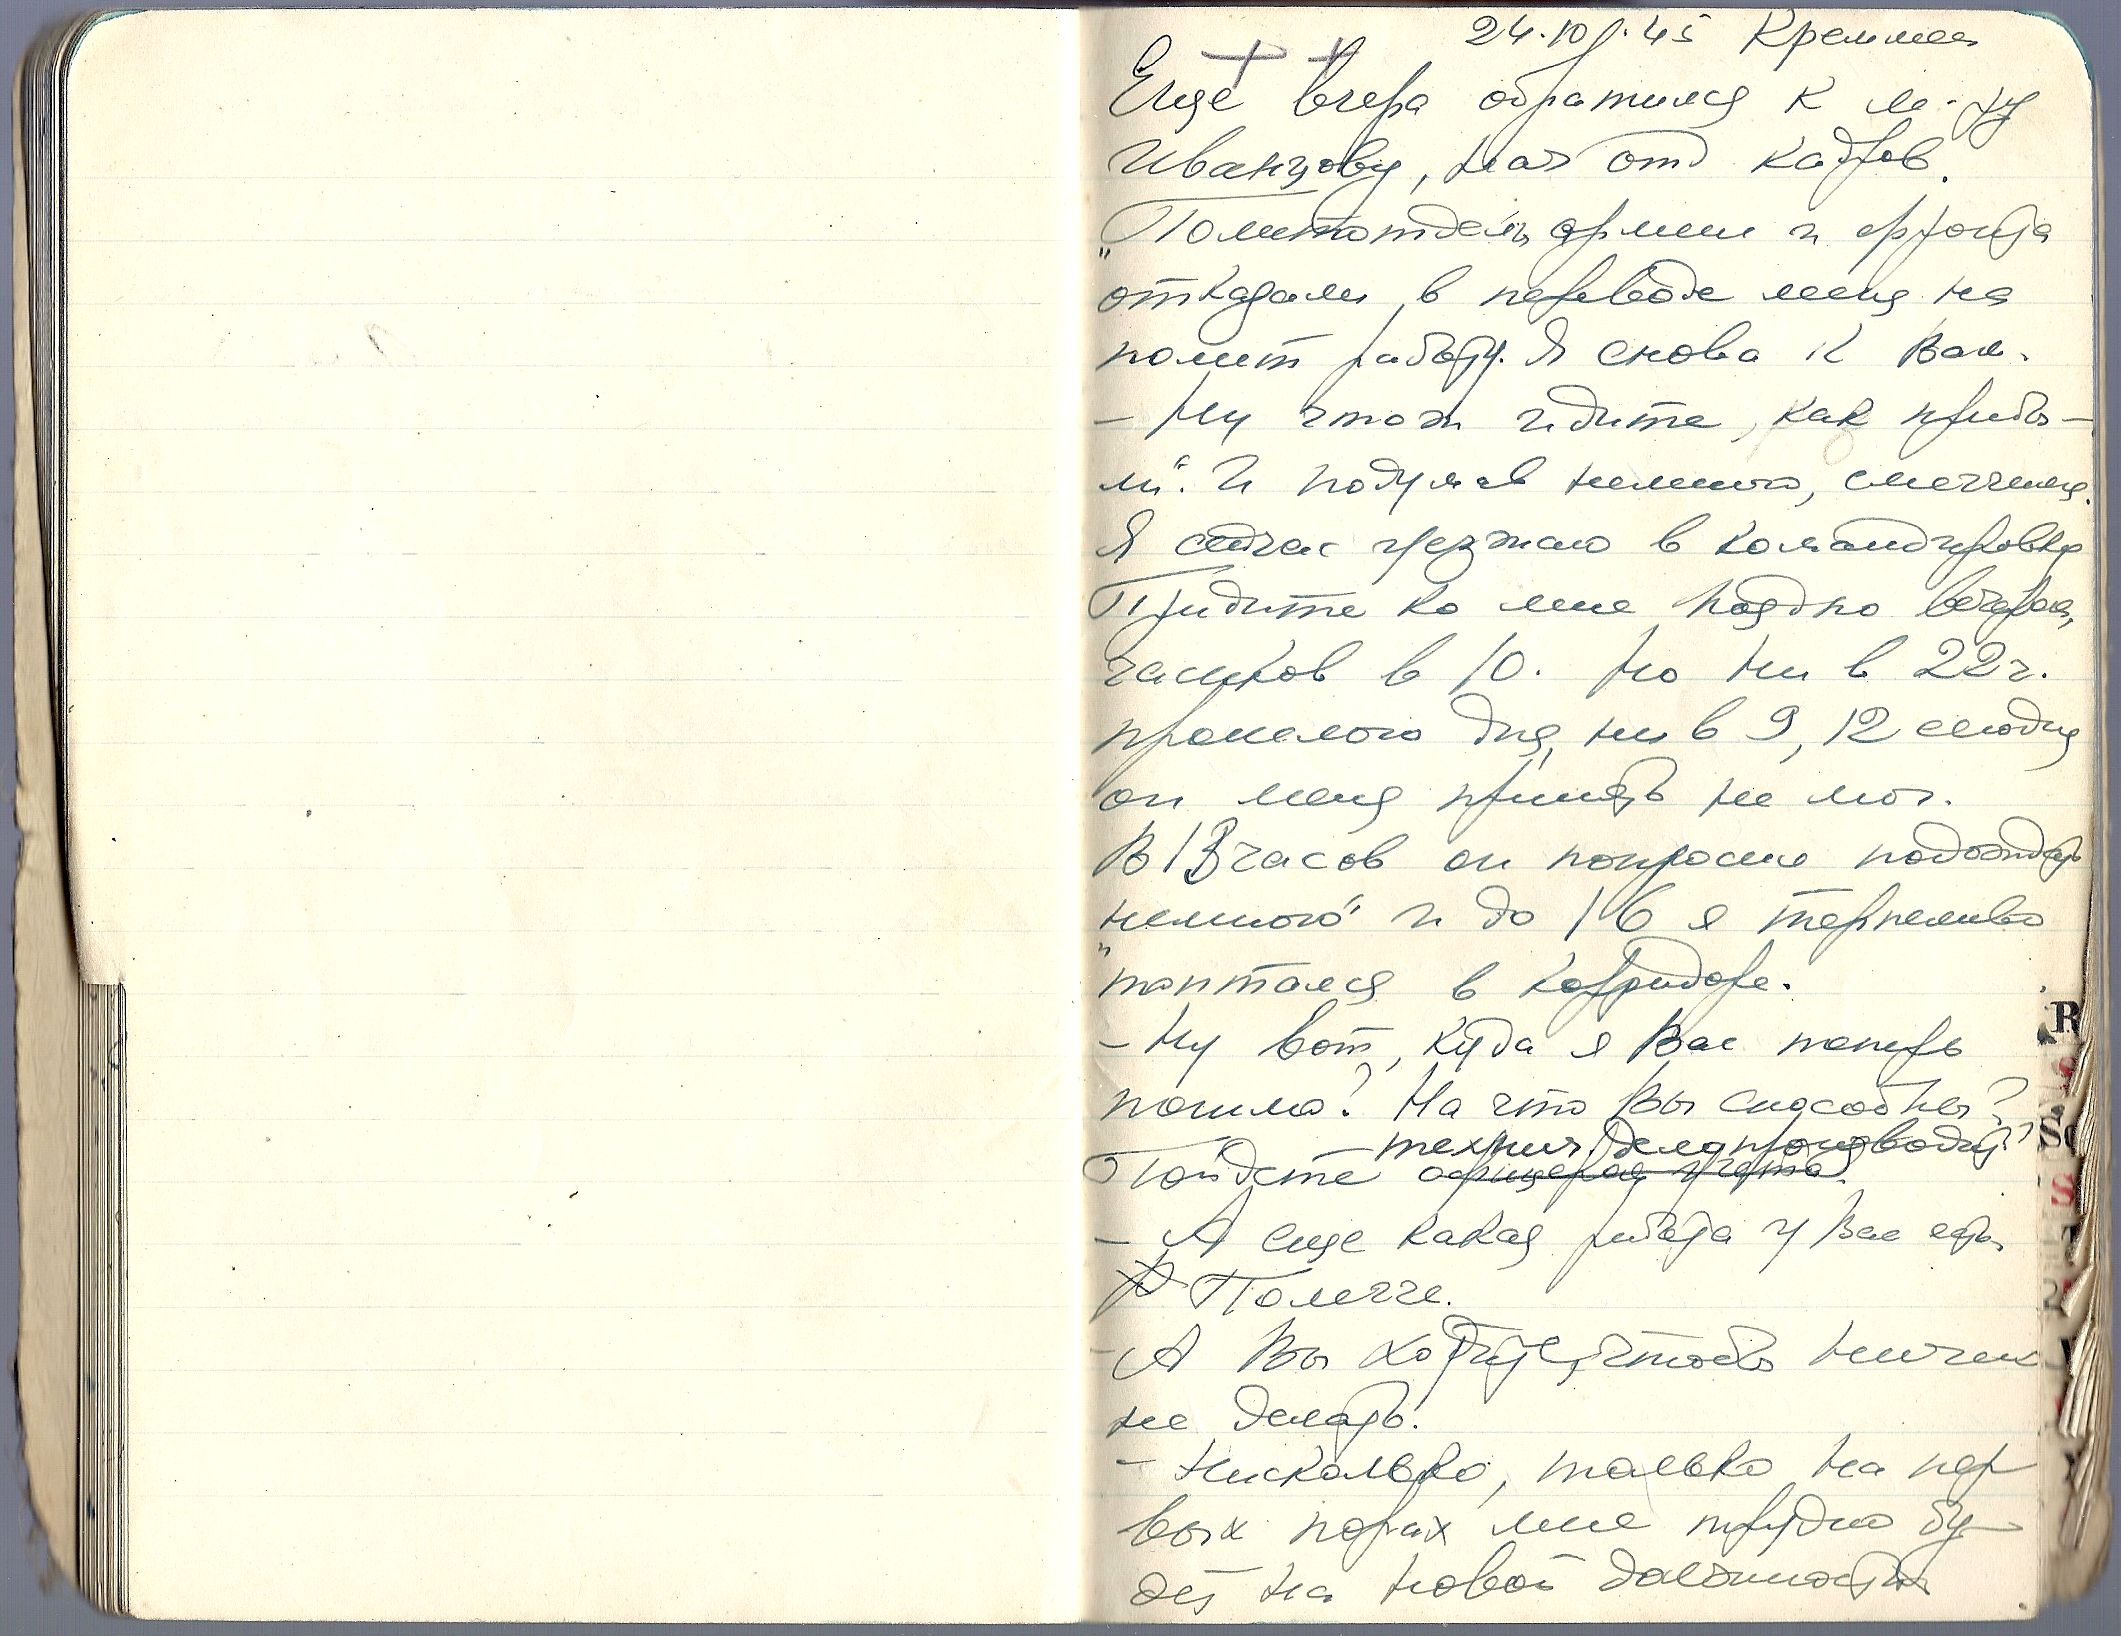 24.10.45 Креммен
Еще вчера обратился к м-ру
Иванцову, нач отд кадров.
"Политотделы армии и фронта
отказали в переводе меня на
полит работу. Я снова к Вам.
– Ну что ж идите, как прибы-
ли". И подумав немного, смягчился.
Я сейчас уезжаю в командировку
Придите ко мне поздно вечером,
часиков в 10. Но ни в 22 ч.
прошлого дня, ни в 9, 12 сегодня
он меня принять не мог.
В 13 часов он попросил подождать
немного" и до 16 я терпеливо
"топтался в корридоре.
– Ну вот, куда я Вас теперь
пошлю? На что Вы способны?
технич. делопроизводит.?
Пойдете офицером учета.
– А еще какая работа у Вас есть
Полегче.
– А Вы хотите, чтобы ничего
не делать.
– Нисколько, только на пер
вых порах мне трудно бу-
дет на новой должности
R
S